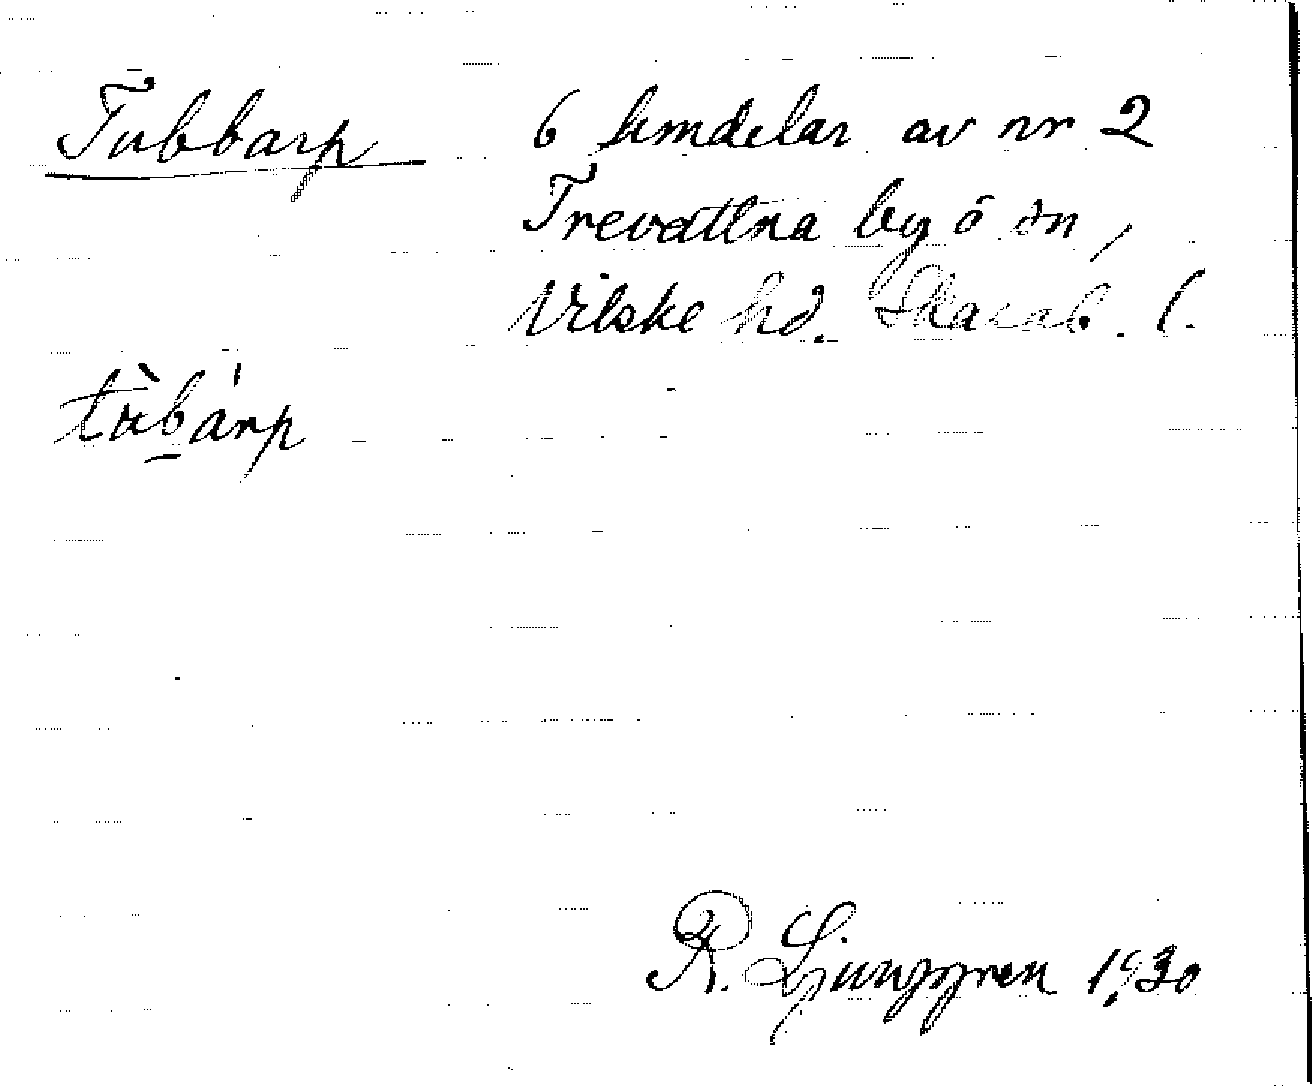 Tubbarp
6 hemdelar av nr 2
Trevattna by o sn,
Vilske hd. Skarab. l.
tùb̲árp
R. Ljunggren 1930